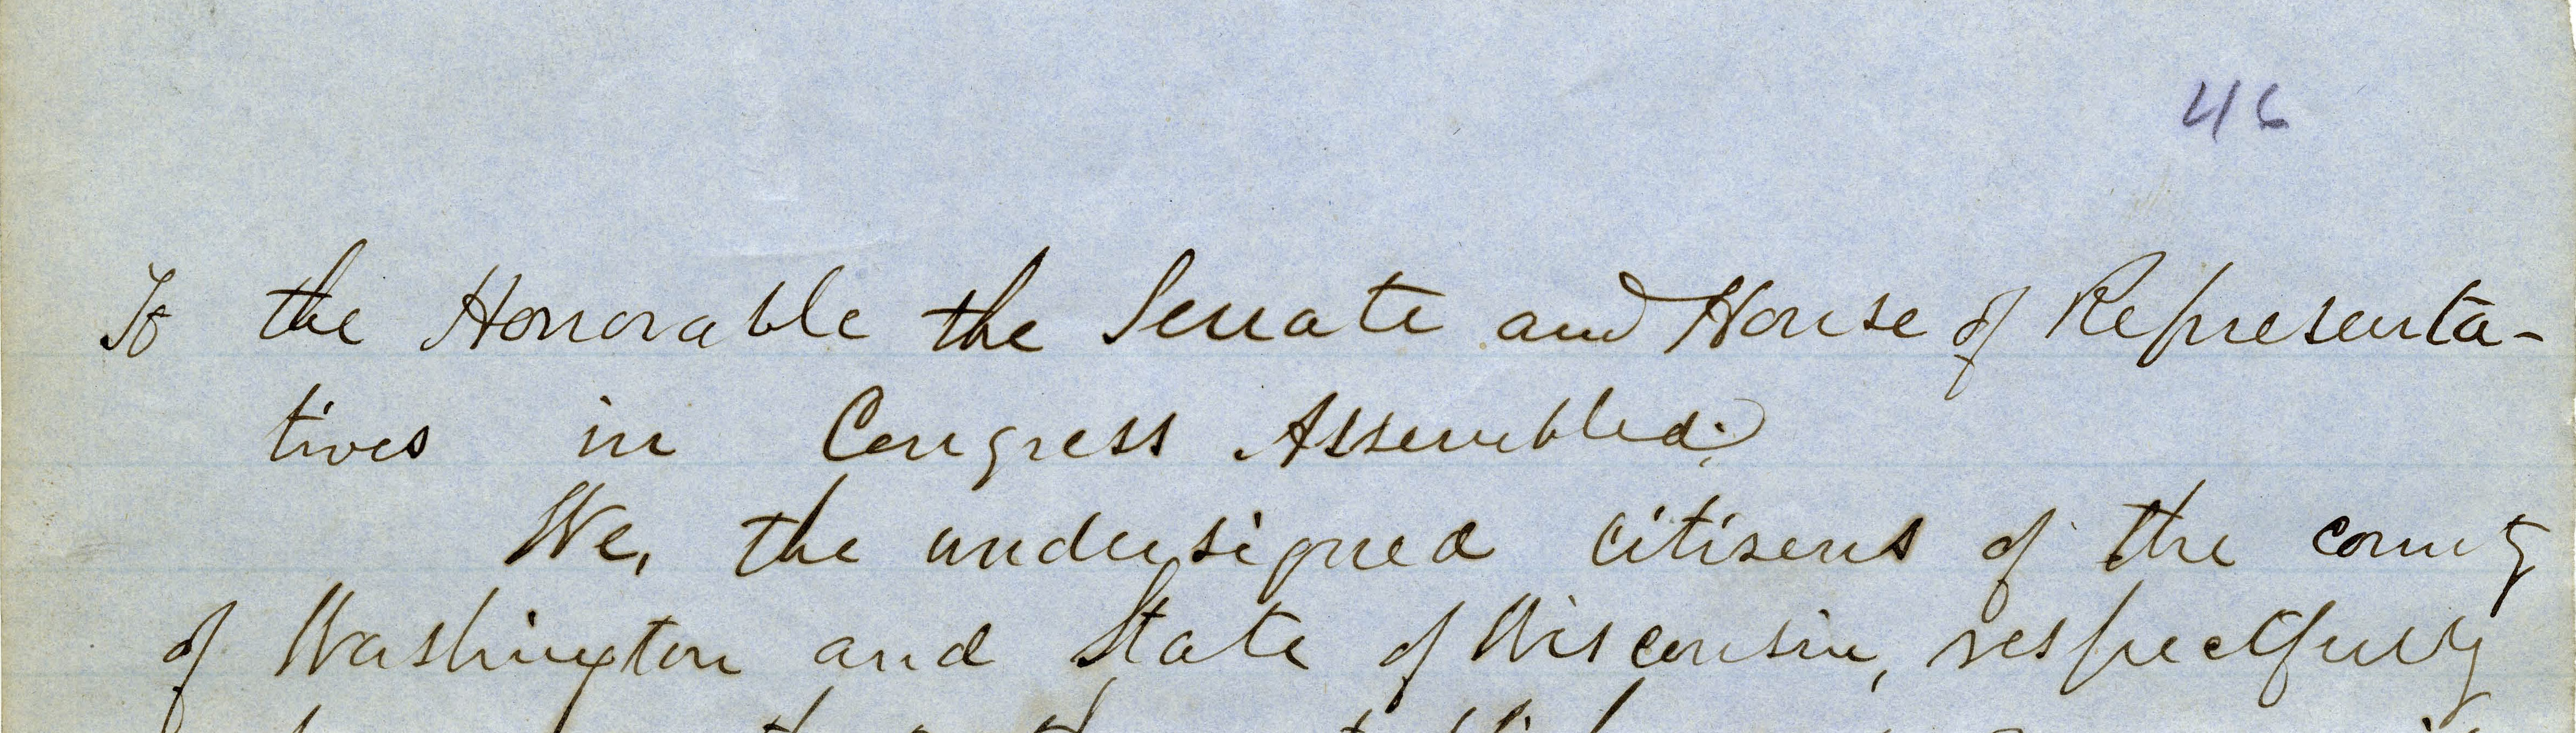 46
To the Honorable the Senate and House of Representa-
tives in Congress Assembled;
We, the undersigned citisens of the county
of Washington and State of Wisconsin, respectfully